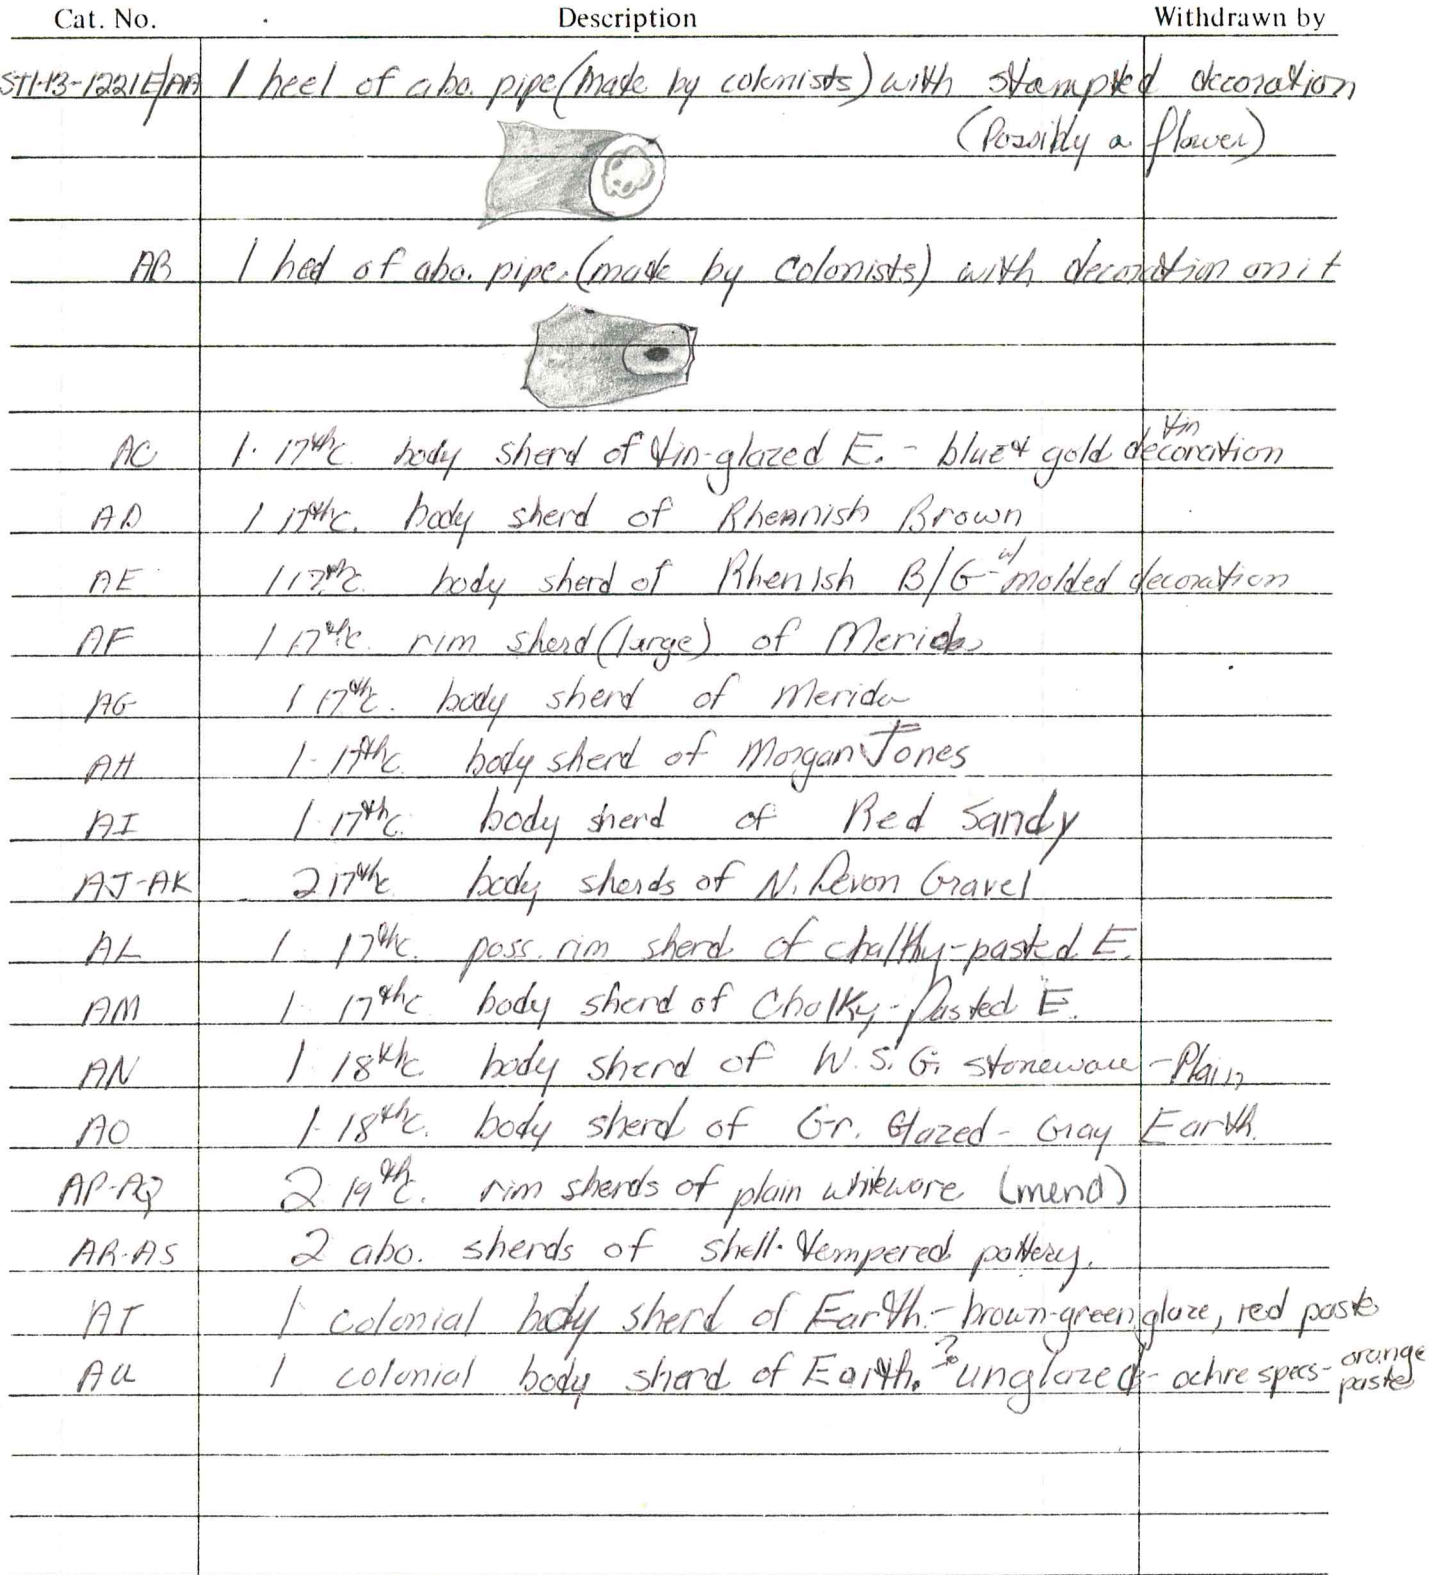 Cat. No. Description Withdrawn by
ST1-13-1221E/AA 1 heel of abo. pipe (made by colonists) with stampted decoration
(Possibly a flower)
AB 1 heel of abo. pipe (made by colonists) with decoration on it
AC 1 17thc. body sherd of tin-glazed E. - blue & gold tin decoration
AD 1 17thc. body sherd of Rhennish Brown
AE 1 17thc. body sherd of Rhenish B/G - w/ molded decoration
AF 1 17thc. rim sherd (large) of Merida
AG 1 17thc. body sherd of Merida
AH 1 17thc. body sherd of Morgan Jones
AI 1 17thc. body sherd of Red Sandy
AJ-AK 2 17thc. body sherds of N. Devon Gravel
AL 1 17thc. poss. rim sherd of chalky-pasted E.
AM 1 17thc body sherd of Chalky-Pasted E.
AN 1 18thc. body sherd of W.S.G. stoneware - Plain
AO 1 18thc. body sherd of Gr. Glazed - Gray Earth.
AP-AQ 2 19thc. rim sherds of plain whiteware (mend)
AR-AS 2 abo. sherds of shell-tempered pottery.
AT 1 colonial body sherd of Earth. - brown-green glaze, red paste
AU 1 colonial body sherd of Earth. ? unglazed - ochre specs - orange paste